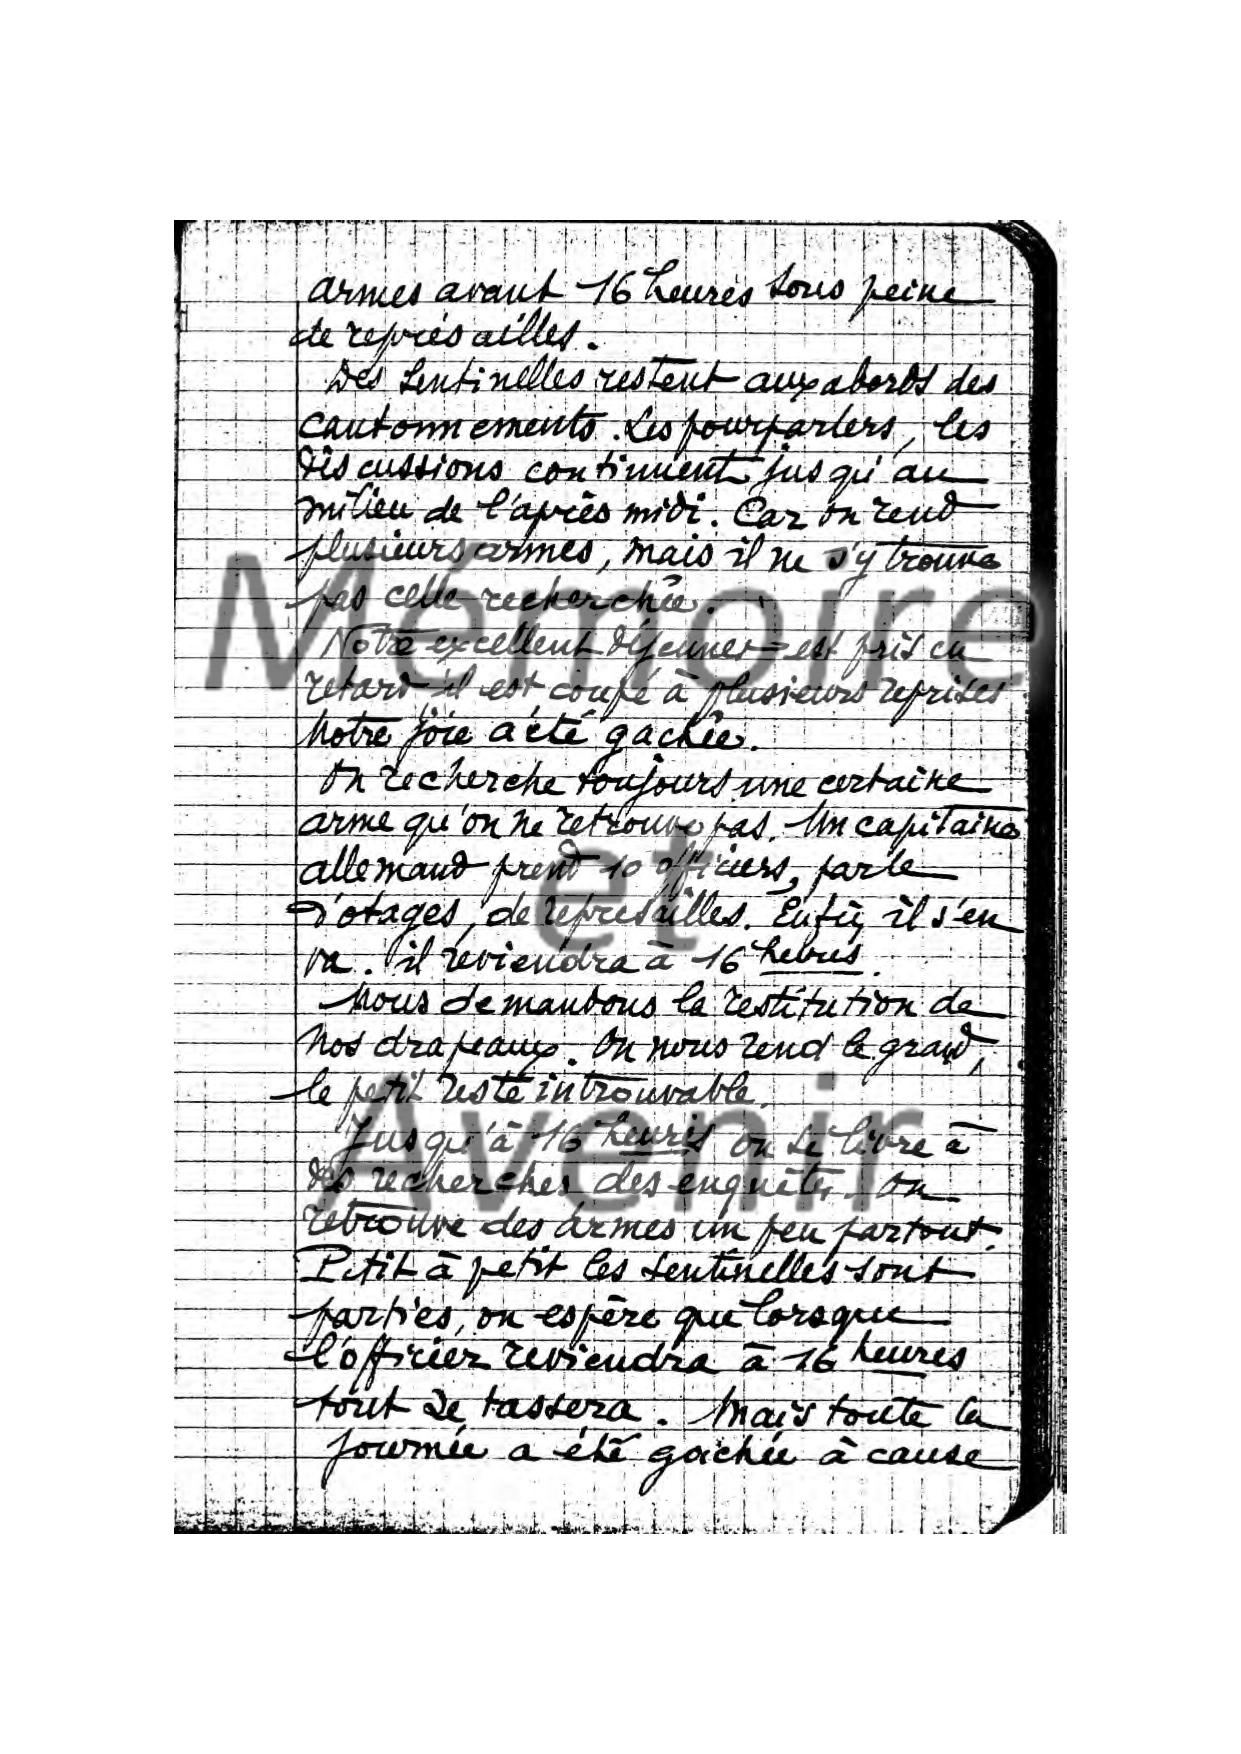 armes avant 16 heures sous peine
de représailles.
Des sentinelles restent aux abords des
cantonnements. Les pourparlers, les
discussions continuent jusqu'au
milieu de l'après midi. Car on rend
plusieurs armes, mais il ne s'y trouve
pas celle recherchée.
Notre excellent déjeuner est pris en
retard il est coupé à plusieurs reprises
Notre joie a été gachée.
On recherche toujours une certaine
arme qu'on ne retrouve pas. Un capitaine
allemand prend 10 officiers, parle
d'otages, de représailles. Enfin il s'en
va. il reviendra à 16 heures.
Nous demandons la restitution de
nos drapeaux. On nous rend le grand,
le petit reste introuvable.
Jusqu'à 16 heures on se livre à
des recherches des enquêtes. On
retrouve des armes un peu partout.
Petit à petit les sentinelles sont
parties, on espère que lorsque
l'officier reviendra à 16 heures
tout se tassera. Mais toute la
journée a été gachée à cause
Mémoire
et
Avenir